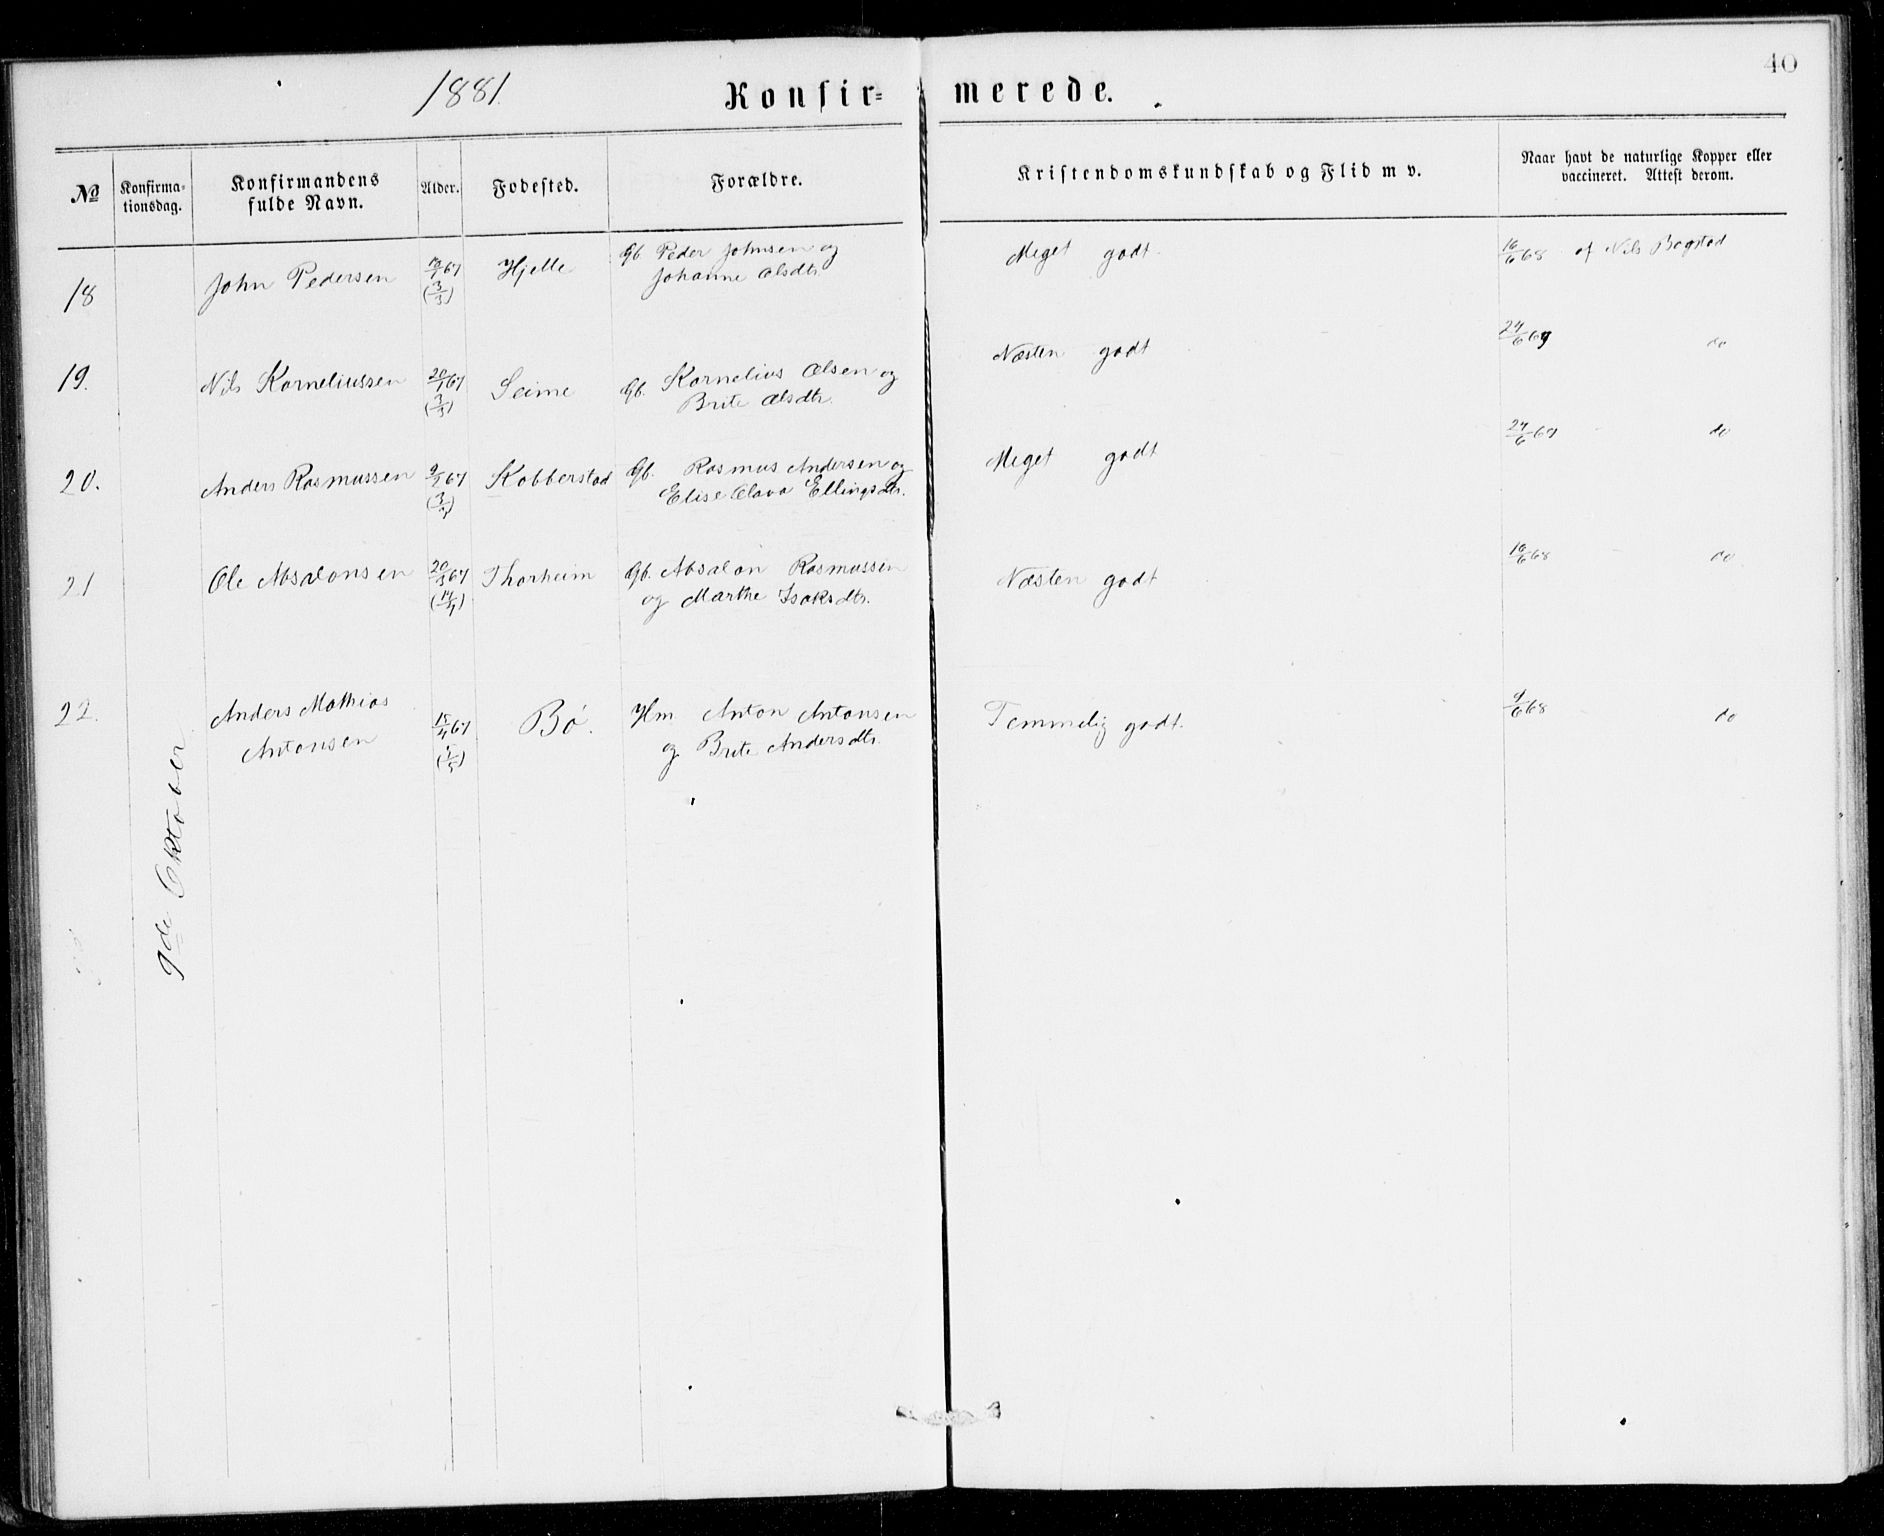 40
1881.
Konfir=merede.
№ Konfirma-tionsdag. Konfirmandens fulde Navn. Alder. Fødested. Forældre. Kristendomskundskab og Flid m v. Naar havt de naturlige Kopper eller vaccineret. Attest derom.
18 John Pedersen /1 67 (3/3) Hjelle Gb. Peder Johnsen og Johanne Olsdtr. Meget godt. 16/6 68 af Nils Bogstad
19. Nils Korneliussen 20/1 67 (3/3) Seime Gb. Kornelius Olsen og Brite Olsdtr. Næsten godt 24/6 69 do
20. Anders Rasmussen 67 (3/3) Kobberstad Gb. Rasmus Andersen og Elise Olava Ellingsdtr. Meget godt 24/6 67 do
21 Ole Absalonsen 20/3 67 (14/4) Thorheim Gb. Absalon Rasmussen og Marthe Isaksdtr. Næsten godt 16/6 68 do
22. Anders Mathias Antonsen 15/4 67 Bø. Hm Anton Antonsen og Brite Andersdtr. Temmelig godt. /6 68 do
9de Oktober